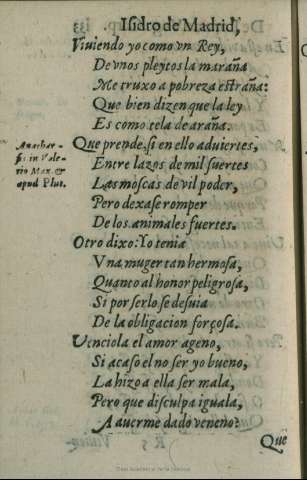 Isidro de Madrid,
Viuiendo yo como vn Rey,
De vnos pleytos la maraña
Me truxo a pobreza estraña:
Que bien dizen que la ley
Es como tela de araña.
Que prende, si en ello aduiertes,
Entre lazos de mil suertes
Las moscas de vil poder,
Pero dexase romper
De los animales fuertes.
Otro dixo: Yo tenia
Vna muger tan hermosa,
Quanto al honor peligrosa,
Si por serlo se desuia
De la obligacion forçosa.
Venciola el amor ageno,
Si acaso el no ser yo bueno,
La hizo a ella ser mala,
Pero que disculpa iguala,
A auerme dado veneno?
Que
Anachar-
sis in Vale-
rio Max. &
apud Plut.